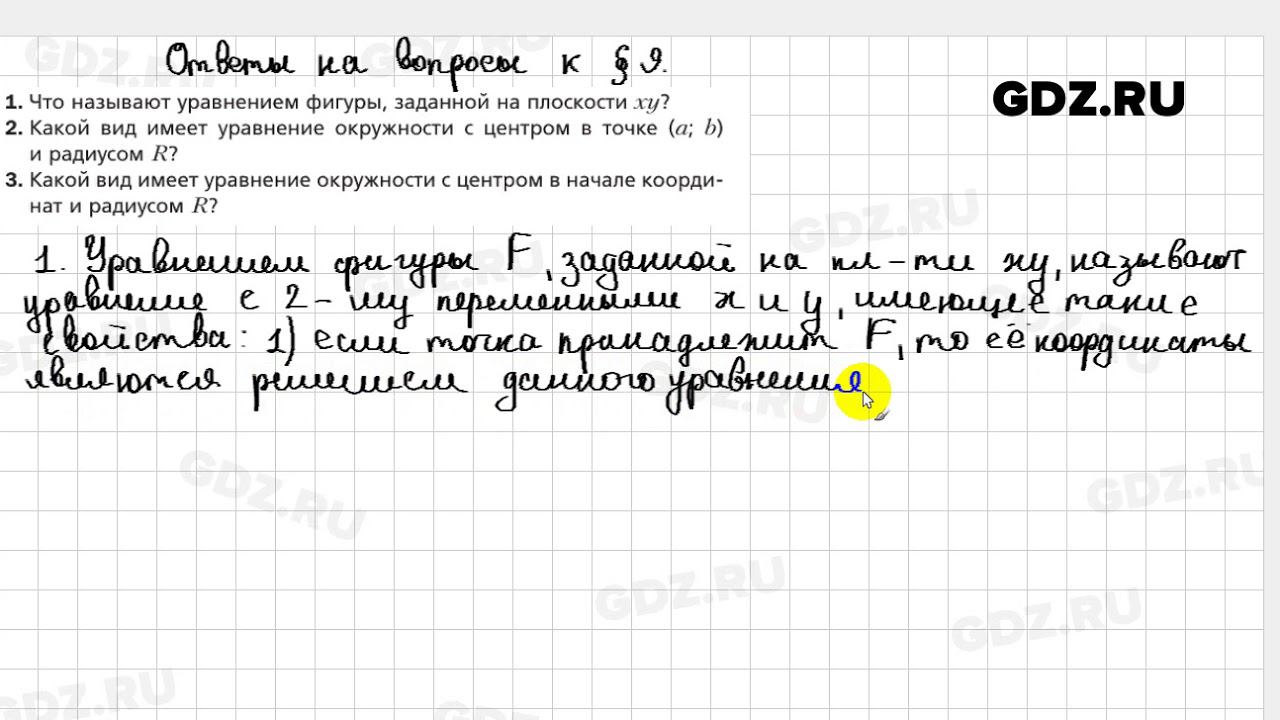 Ответы на вопросы к § 9.
GDZ.RU
1. Что называют уравнением фигуры, заданной на плоскости xy?
2. Какой вид имеет уравнение окружности с центром в точке (a; b)
и радиусом R?
3. Какой вид имеет уравнение окружности с центром в начале коорди-
нат и радиусом R?
1. Уравнением фигуры F, заданной на пл-ти xy, называют
уравнение с 2-му переменными x и y, имеющее такие
свойства: 1) если точка принадлежит F, то её координаты
являются решением данного уравнения
GDZ.RU
GDZ.RU
GDZ.RU
GDZ.RU
GDZ.RU
GDZ.RU
GDZ.RU
GDZ.RU
GDZ.RU
GDZ.RU
GDZ.RU